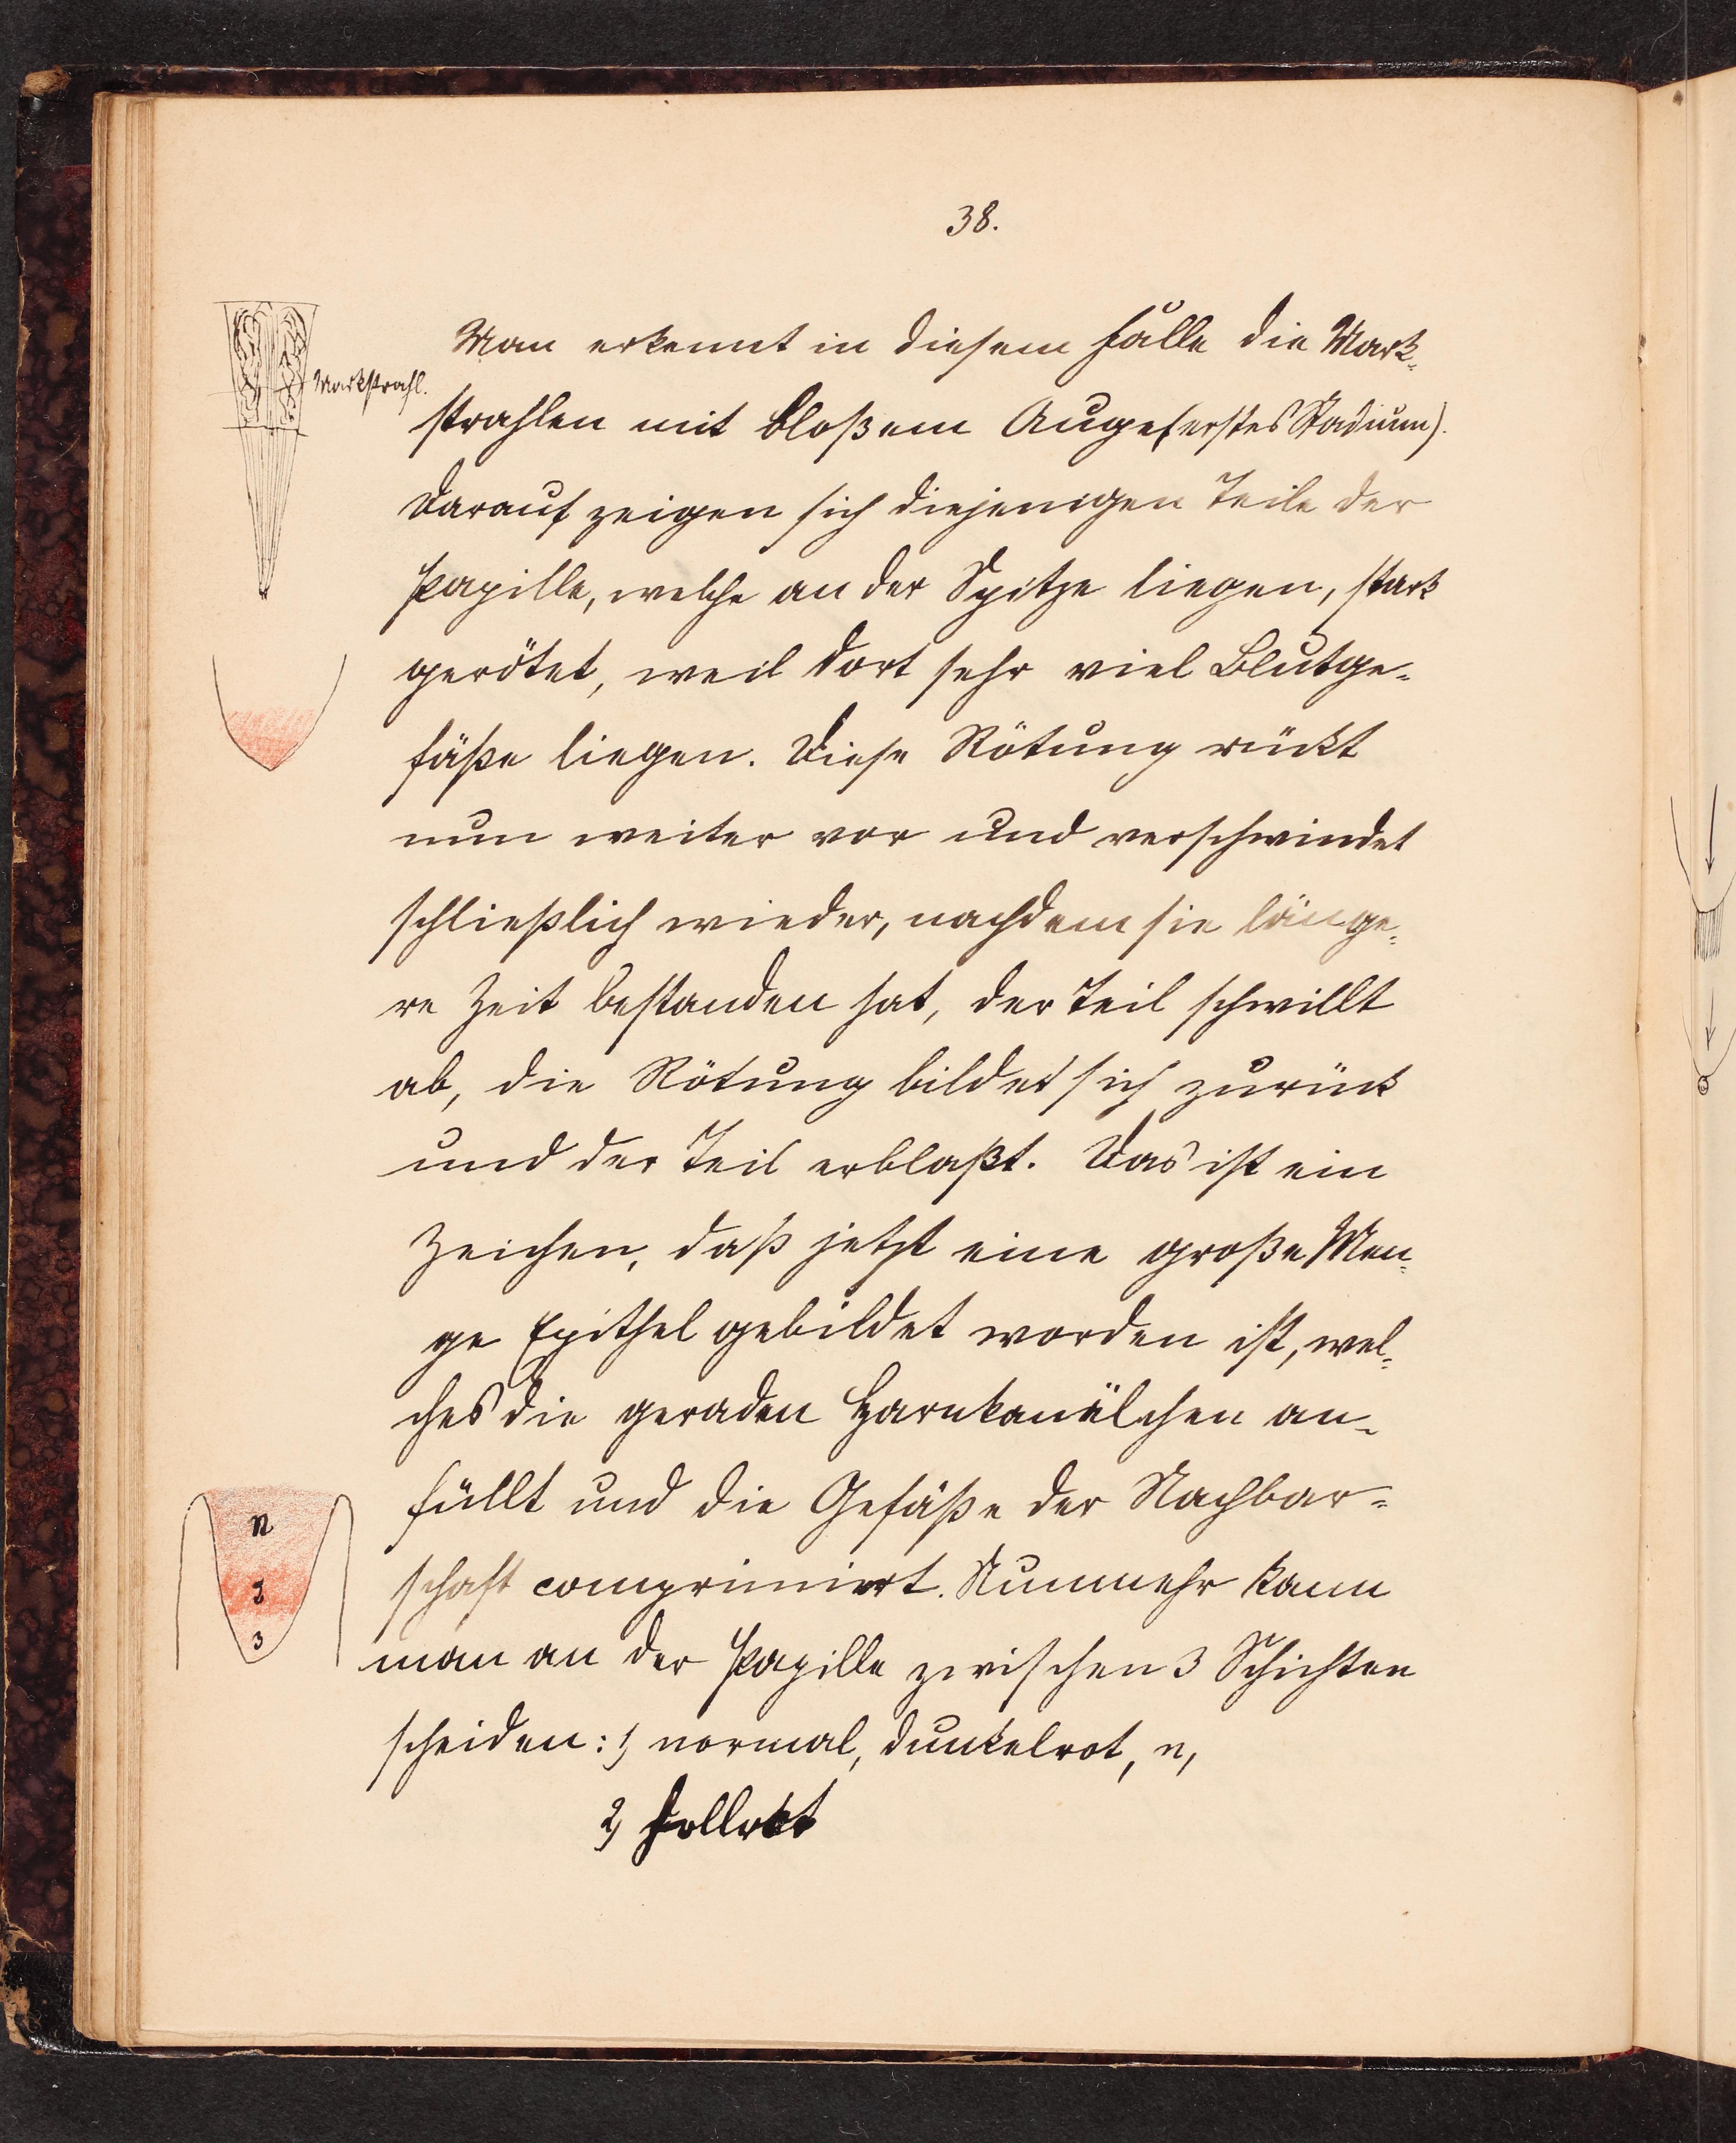 38.
Man erkennt in diesem Falle die Mark-
Markstrahl.
strahlen mit bloßem Auge (erstes Stadium).
Darauf zeigen sich diejenigen Teile der
Papille, welche an der Spitze liegen, stark
gerötet, weil dort sehr viel Blutge-
fäße liegen. Diese Rötung rückt
nun weiter vor und verschwindet
schließlich wieder, nachdem sie länge-
re Zeit bestanden hat, der Teil schwillt
ab, die Rötung bildet sich zurück
und der Teil erblaßt. Das ist ein
Zeichen, daß jetzt eine große Men-
ge Epithel gebildet worden ist, wel-
ches die geraden Harnkanälchen an-
füllt und die Gefäße der Nachbar-
n
schaft comprimiert. Nunmehr kann
2
man an der Papille zwischen 3 Schichten
3
scheiden: 1, normal, dunkelrot, n,
2, hellrot